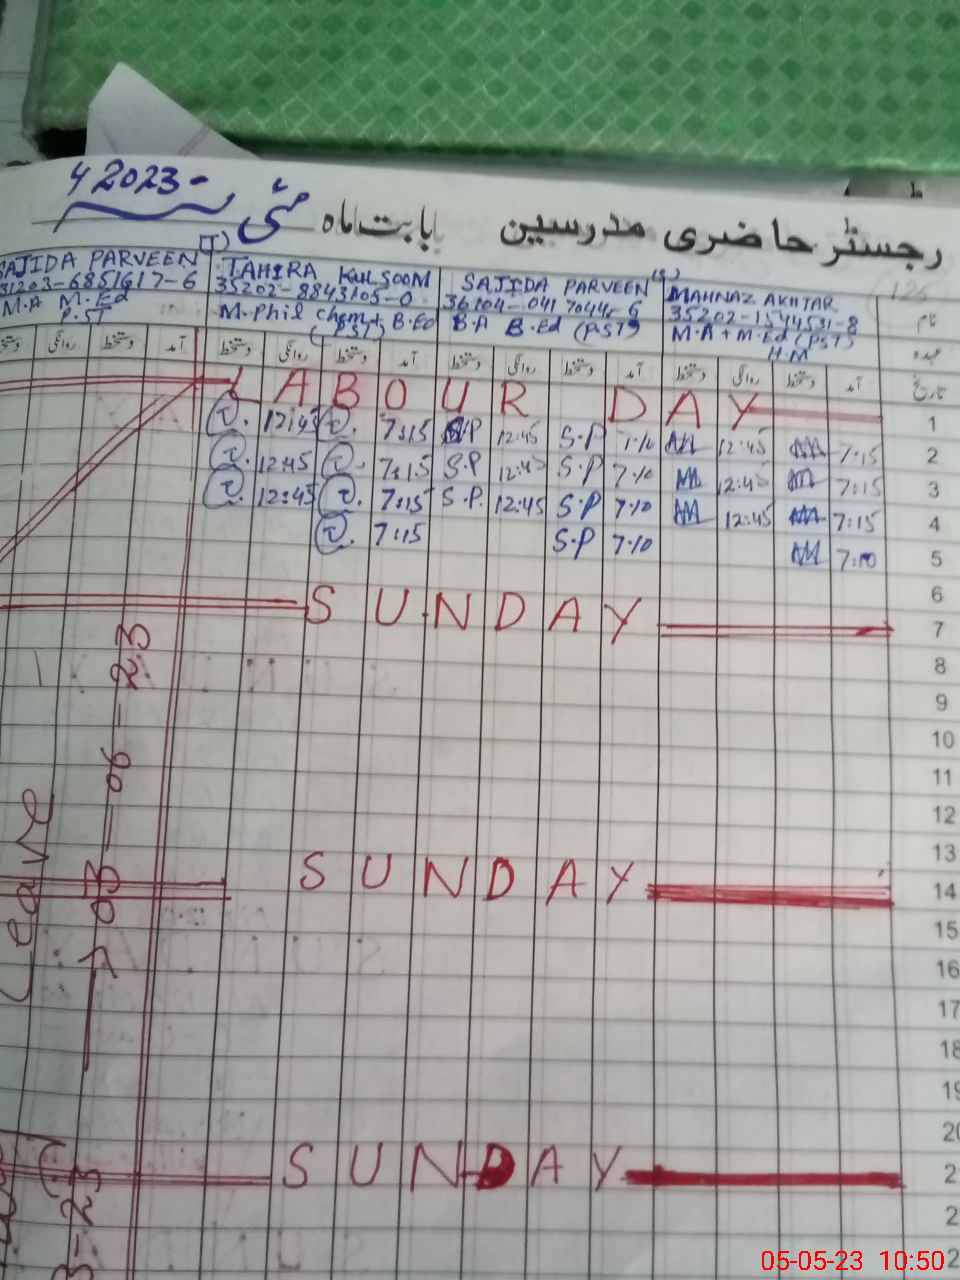 رجسٹر حاضری مدرسین بابت ماہ مئی 2023
نام
MAHNAZ AKHTAR
35202-1544531-8
M.A + M.Ed (PST)
H.M
SAJIDA PARVEEN
B.A B.Ed (PST)
TAHIRA KULSOOM
35202-8843105-0
M.Phil Chem + B.Ed
(PST)
SAJIDA PARVEEN (I)
31203-6851617-6
M.A M.Ed
P.ST
عہدہ
تاریخ آمد دستخط روانگی دستخط آمد دستخط روانگی دستخط آمد دستخط روانگی دستخط آمد دستخط روانگی دستخط
1 LABOUR DAY
2 7:15 12:45 7:10 S.P 12:45 S.P 7:15 12:45
3 7:15 12:45 7:10 S.P 12:45 S.P 7:15 12:45
4 7:15 12:45 7:10 S.P 12:45 S.P. 7:15 12:45
5 7:10 7:10 S.P 7:15
6
7 SUNDAY
8
9
10
11
12
13
14 SUNDAY
15
16
17
18
19
20
2 SUNDAY
2
2
Leave
03-06-23
05-05-23 10:50